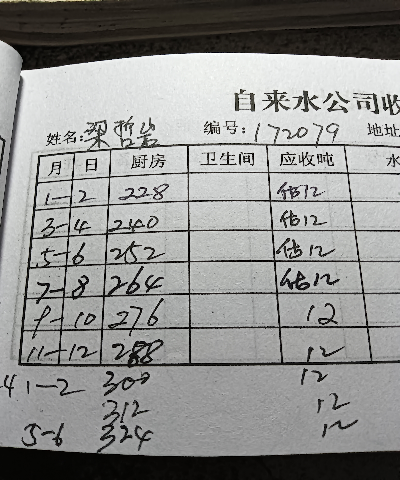 自来水公司收
姓名: 梁哲岩 编号: 172079 地址
月 日 厨房 卫生间 应收吨 水
1-2 228 估12
3-4 240 估12
5-6 252 估12
7-8 264 估12
9-10 276 12
11-12 288 12
4 1-2 300 12
312 12
5-6 324 12